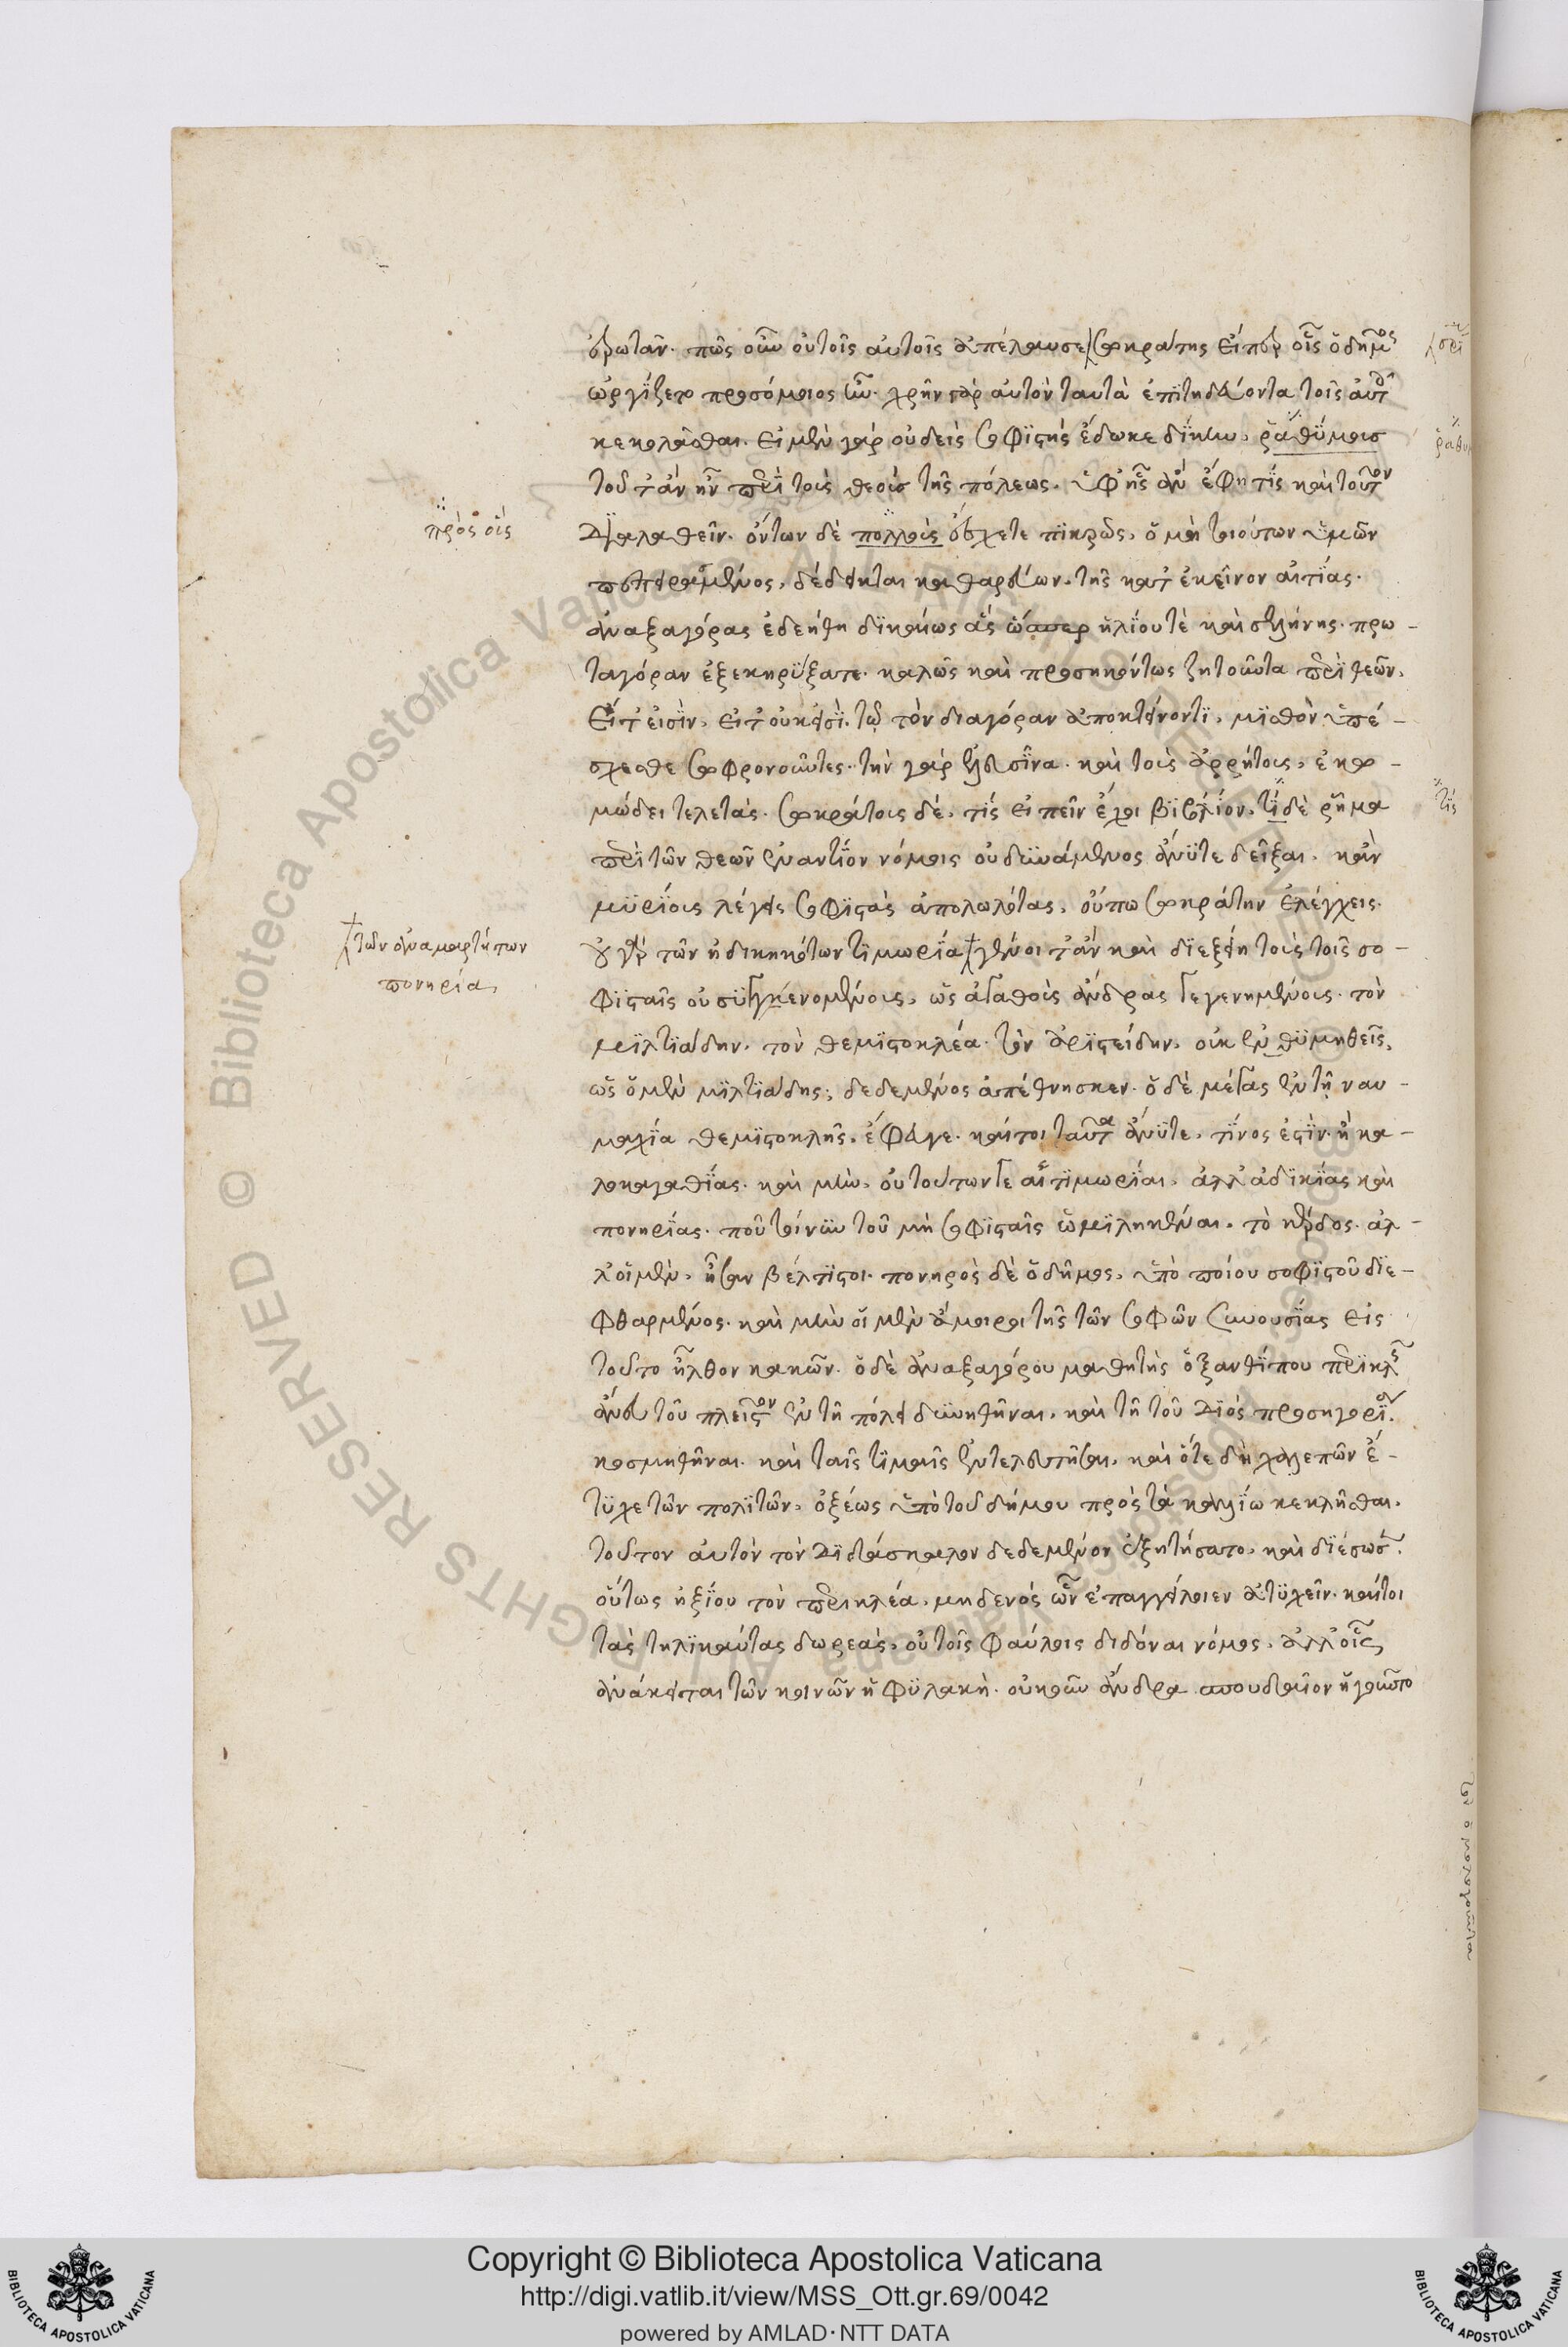 ἐρωτᾶν. πῶς οὖν οὐ τοῖς αὐτοῖς ἀπέλαυσε Σωκράτης εἴπερ οἷς ὁ δῆμος
ὠργίζετο προσόμοιος ὢν. χρῆν γὰρ αὐτὸν ταυτὰ ἐπιτηδεύοντα τοῖς αὐτοῖς
κεκολάσθαι. εἰ μὲν γὰρ οὐδεὶς σοφιστὴς ἔδωκε δίκην, ῥαθύμοις
τοῦτ ἂν ἦν περὶ τοὺς θεοὺς τῆς πόλεως. ὑφ ἧς ἂν ἔφη τίς καὶ τοῦτον
διαλαθεῖν. ὄντων δὲ πολλοὺς ἔσχετε πικρῶς, ὁ μὴ τοιούτων ὑμῶν
πεπειραμένος, δέδεικται καθαρεύων. τῆς κατ ἐκεῖνον αἰτίας.
πρὸς οὓς
ἀναξαγόρας ἐδεήθη δικαίως ἀσεβήσας περὶ ἡλίου τὲ καὶ σελήνης. πρω-
ταγόραν ἐξεκηρύξατε. καλῶς καὶ προσηκόντως ζητοῦντα περὶ θεῶν.
εἴτ εἰσὶν, εἴτ οὐκ εἰσὶ. τῷ τὸν διαγόραν ἀποκτείνοντι, μισθὸν ὑπέ-
σχεσθε σωφρονοῦντες. τὴν γὰρ ἐλευσῖνα. καὶ τοὺς ἀρρήτους, ἐκω-
μώδει τελετάς. σωκράτους δὲ, τίς εἰπεῖν ἔχοι βιβλίον, τί δὲ ῥῆμα
περὶ τῶν θεῶν ἐναντίον νόμοις οὐ δυνάμενος ἄνυτε δεῖξαι. κἂν
μυρίους λέγεις σοφιστὰς ἀπολωλότας, οὔπω σωκράτην ἐλέγχεις.
οὐ γὰρ τῶν ἠδικηκότων τιμωρία γένοιτ ἂν καὶ διεξήει τοὺς τοῖς σο-
τῶν ἀναμαρτήτων
πονηρία
φισταῖς οὐ συγγενομένους, ὡς ἀγαθοὺς ἄνδρας γεγενημένους. τὸν
μιλτιάδην. τὸν θεμιστοκλέα. τὸν ἀριστείδην. οὐκ ἐνθυμηθεὶς,
ὡς ὁ μὲν μιλτιάδης, δεδεμένος ἀπέθνησκεν. ὁ δὲ μέγας ἐν τῇ ναυ-
μαχία θεμιστοκλῆς, ἔφευγε. καίτοι ταῦτα ἄνυτε, τίνος ἐστὶν. ἢ κα-
λοκαγαθίας. καὶ μὴν, οὐ τούτων γε αἱ τιμωρίαι, ἀλλ ἀδικίας καὶ
πονηρίας. ποῦ τοίνυν τοῦ μὴ σοφισταῖς ὡμιληκέναι, τὸ κέρδος. ἀλ-
λ οἱ μὲν, ἦσαν βέλτιστοι. πονηρὸς δὲ ὁ δῆμος, ὑπὸ ποίου σοφιστοῦ διε-
φθαρμένος. καὶ μὴν οἱ μὲν ἄμοιροι τῆς τῶν σοφῶν συνουσίας εἰς
τοῦτο ἦλθον κακῶν. ὁ δὲ ἀναξαγόρου μαθητὴς ὁ ξανθίπου περικλῆς
ἄνευ τοῦ πλεῖστον ἐν τῇ πόλει δυνηθῆναι, καὶ τῇ τοῦ διὸς προσηγορίᾳ
κοσμηθῆναι. καὶ ταῖς τιμαῖς ἐντελευτῆσαι, καὶ ὅτε δὴ χαλεπῶν ἐ-
τυχε τῶν πολιτῶν, ὀξέως ὑπὸ τοῦ δήμου πρὸς τὰ καλλίω κεκλῆσθαι.
τοῦτον αὐτὸν τὸν διδάσκαλον δεδεμένον ἐξητήσατο, καὶ διέσωσε.
οὕτως ἠξίου τὸν περικλέα, μηδενὸς ὧν ἐπαγγέλοιεν ἀτυχεῖν. καίτοι
τὰς τηλικαύτας δωρεὰς, οὐ τοῖς φαύλοις διδόναι νόμος, ἀλλ οἷς
ἀνάκειται τῶν κοινῶν ἡ φυλακὴ. οὐκοῦν ἄνδρα σπουδαῖον ἡγοῦντο